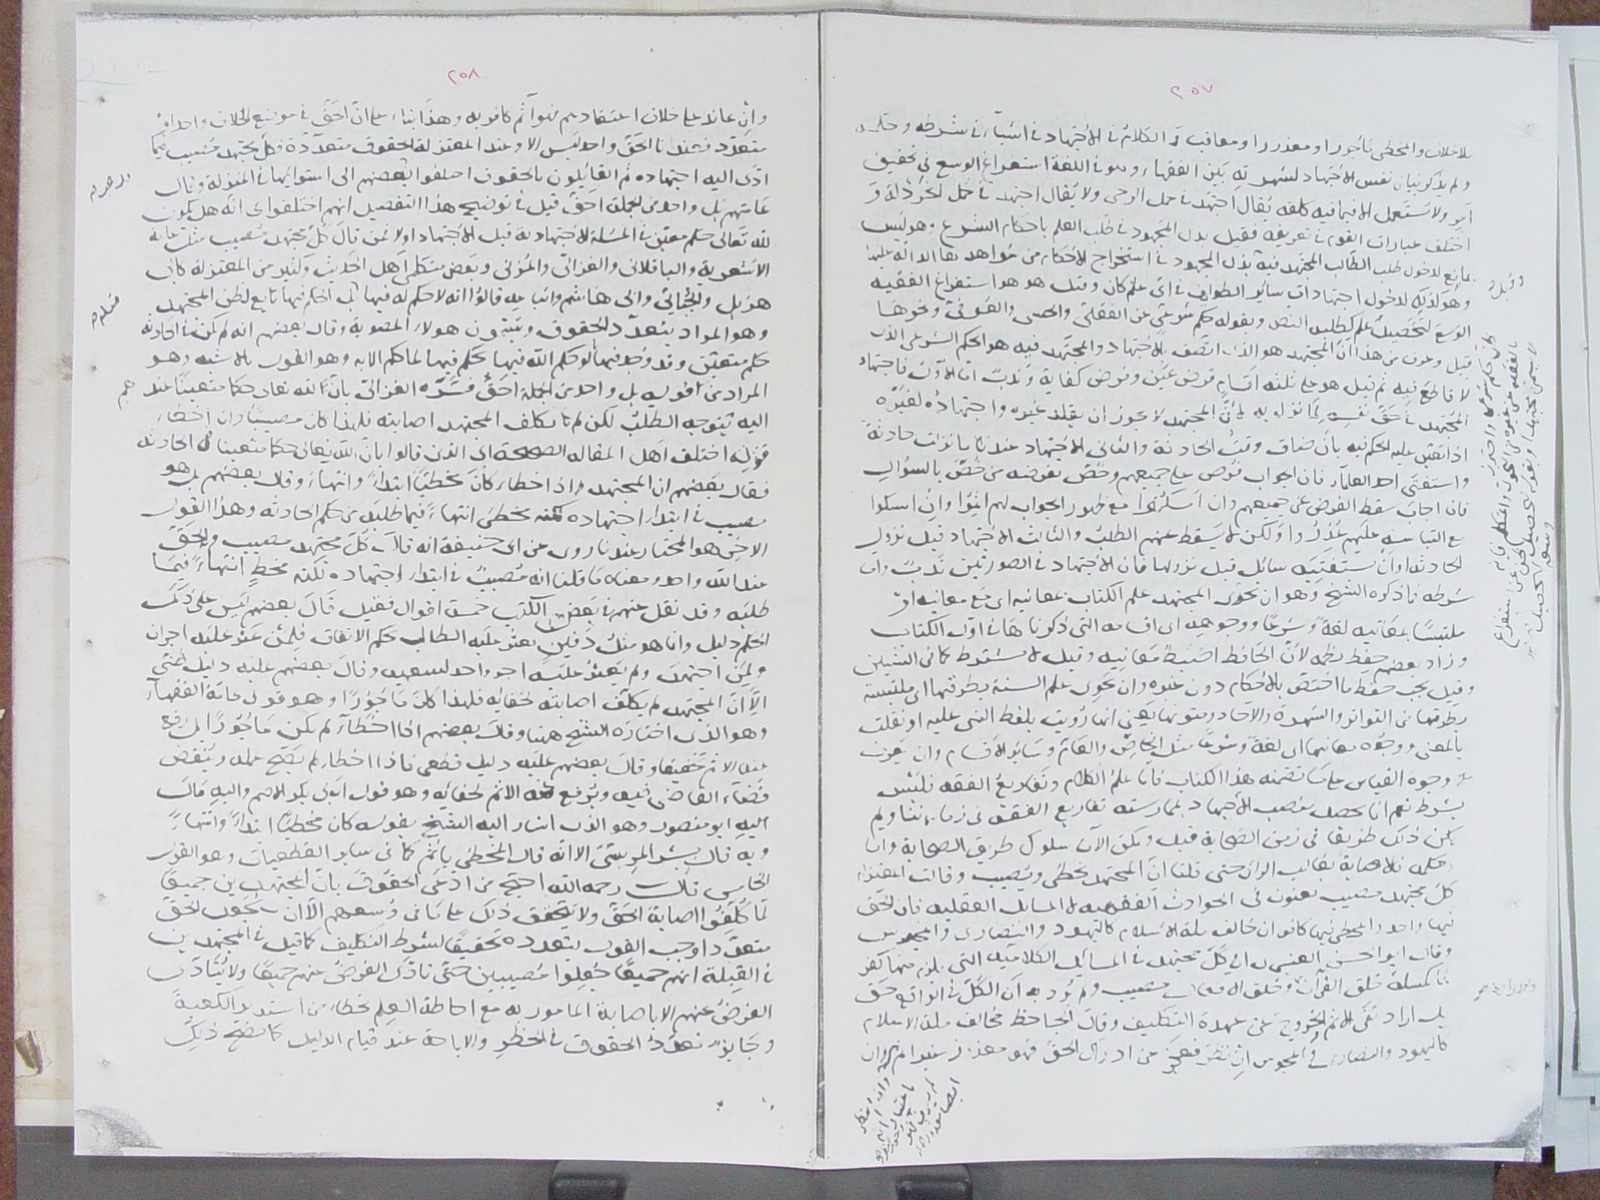 ٢٥٧
للاخلاف والمخطى مأجورا و معذورا و معاقب والكلام فى الاجتهاد فى اشياء فى شرطه وحكمه
ولم يذكر بيان نفس الاجتهاد لشهرته بين الفقهاء وهو فى اللغة استفراغ الوسع فى تحقيق
امر ولا يستعمل الا فيما فيه كلفة يقال اجتهد فى حمل الرحى ولا يقال اجتهد فى حمل خردلة و
اختلف عبارات القوم فى تعريفه فقيل بذل المجهود فى طلب العلم باحكام الشرع وهو ليس
بمانع لدخول طلب الطالب المجتهد فيه بذل المجهود فى استخراج الاحكام من شواهدها الدالة عليها
وهو كذلك لدخول اجتهادات سائر الطوايف فى اى علم كان وقيل هو استفراغ الفقيه
الوسع لتحصيل علم او ظن بحكم شرعى عن العقلى والحسى والعرفى ونحوها
قيل وعرف من هذا ان المجتهد هو الذى اتصف بالاجتهاد والمجتهد فيه هو الحكم الشرعى الذى
لا قاطع فيه ثم قيل هو على ثلثة اقسام فرض عين وفرض كفاية وندب اما الاول فاجتهاد
المجتهد فى حق نفسه لما نزل به لان المجتهد لا يجوز ان يقلد غيره واجتهاده لغيره
اذا تعين عليه الحكم فيه بان ضاق وقت الحادثة والثانى الاجتهاد عندنا بان نزلت حادثة
واستفتى احد العلماء فان الجواب فرض على جميعهم وخص بفرضه من خص بالسؤال
فان اجاب سقط الفرض عن جميعهم وان امسكوا مع ظهور الجواب لهم اثموا وان امسكوا
مع التباسه عليهم عذروا ولكن لا يسقط عنهم الطلب والثالث الاجتهاد قبل نزول
الحادثة وان يستفتيه سائل قبل نزولها فان الاجتهاد فى الصورتين ندب واما
شرطه فاذكره الشيخ وهو ان يحوى المجتهد علم الكتاب بمعانيه اى مع معانيه او
ملتبسا بمعانيه لغة وشرعا ووجوهه اى اقسامه التى ذكرناها فى اول الكتاب
وزاد بعضهم حفظ نظمه لان الحافظ اضبط لمعانيه وقيل لا يشترط
وقيل يجب حفظ ما اختص بالاحكام دون غيره وان يحوى علم السنة بطرقها اى ملتبسة
بطرقها من التواتر والشهرة والاحاد ومتونها يعنى انها رويت بلفظ النبى عليه او نقلت
بالمعنى ووجوه معانيها اى لغة وشرعا مثل الخاص والعام وسائر الاقسام وان يعرف
وجوه القياس على ما تضمنه هذا الكتاب فاما علم الكلام وتفاريع الفقه فليس
بشرط نعم انما يحصل منصب الاجتهاد بممارسته تفاريع الفقه فى زماننا ولم
يكن ذلك طريقا فى زمن الصحابة قيل ويمكن الان سلوك طريق الصحابة واما
حكمه فالاصابة بغالب الراى حتى قلنا ان المجتهد يخطى ويصيب وقالت المعتزلة
كل مجتهد مصيب يعنون فى الحوادث الفقهية لا المسائل العقلية فان الحق
فيها واحد والمخطى فيها كافر ان خالف ملة الاسلام كاليهود والنصارى والمجوس
وقال ابو الحسن العنبرى ان كل مجتهد فى المسائل الكلامية التى لا يلزم منها كفر
كمسئلة خلق القران وخلق الافعال مصيب ولم يرد به ان الكل فى الواقع حق
بل اراد نفى الاثم والخروج عن عهدة التكليف وقال الجاحظ مخالف ملة الاسلام
كاليهود والنصارى والمجوس ان نظر فعجز عن ادراك الحق فهو معذور غير اثم وان
٢٥٨
وان عاند على خلاف اعتقادهم فهو اثم كافر به وهذا بناء على ان الحق فى موضع الخلاف واحد او
متعدد فعندنا الحق واحد ليس الا وعند المعتزلة الحقوق متعددة فكل مجتهد مصيب فيما
ادى اليه اجتهاده ثم القايلون بالحقوق اختلفوا بعضهم الى استوائها فى المنزلة وقال
عامتهم بل واحد من الجملة احق قيل فى توضيح هذا التفصيل انهم اختلفوا فى انه هل يكون
لله تعالى حكم معين فى المسئلة الاجتهادية قبل الاجتهاد اولا فمن قال كل مجتهد مصيب مثل عامة
الاشعرية والباقلانى والغزالى والمزنى وبعض متكلمى اهل الحديث وكثير من المعتزلة كابى
هذيل والجبائى وابى هاشم واتباعه قالوا انه لا حكم له فيها بل الحكم فيها تابع لظن المجتهد
وهو المراد بتعدد الحقوق ويسمون هؤلاء المصوبة وقال بعضهم انه لم يكن فى الحادثة
حكم متعين وقد وجد فيها ما لو حكم الله فيها بحكم فيها لما حكم الا به وهو القول بالاشبه وهو
المراد من اقوله بل واحد من الجملة احق فسره الغزالى بان لله تعالى حكما متعينا عنده
اليه يتوجه الطلب لكن لم يكلف المجتهد اصابته فلهذا كان مصيبا وان اخطاء
قوله اختلف اهل المقالة الصحيحة اى الذين قالوا بان لله تعالى حكما متعينا فى الحادثة
فقال بعضهم ان المجتهد اذا اخطاء كان مخطئا ابتداء وانتهاء وقال بعضهم بل هو
مصيب فى ابتداء اجتهاده لكنه مخطئ انتهاء فيما طلبه من حكم الحادثة وهذا القول
الاخير هو المختار عندنا روى عن ابى حنيفة انه قال كل مجتهد مصيب والحق
عند الله واحد ومعناه ما قلنا انه مصيب فى ابتداء اجتهاده لكنه مخط انتهاء فيما
طلبه وقد نقل عنهم فى بعض الكتب خمسة اقوال فقيل قال بعضهم ليس على ذلك
الحكم دليل وانما هو مثل دفين يعثر عليه الطالب بحكم الاتفاق فلمن عثر عليه اجران
ولمن اجتهد ولم يعثر عليه اجر واحد لسعيه وقال بعضهم عليه دليل ظنى
الا ان المجتهد لم يكلف اصابته لخفائه فلهذا كان مأجورا وهو قول عامة الفقهاء
وهو الذى اختاره الشيخ ههنا وقال بعضهم اذا اخطاء لم يكن مأجورا بل رفع
عنه الاثم تخفيفا وقال بعضهم عليه دليل قطعى فاذا اخطاء لم يصح عمله وينقض
قضاء القاضى فيه ويرفع عنه الاثم لخفائه وهو قول ابى بكر الاصم واليه مال
اليه ابو منصور وهو الذى اشار اليه الشيخ بقوله كان مخطئا ابتداء وانتهاء
وبه قال بشر المريسى الا انه قال المخطى ياثم كما فى سائر القطعيات وهو القول
الخامس قال رحمه الله احتج من ادعى الحقوق بان المجتهدين جميعا
لما كلفوا اصابة الحق ولا يتحقق ذلك على ما فى وسعهم الا ان يجعل الحق
متعددا وجب القول بتعدده تحقيقا لشرط التكليف كما قيل فى المجتهدين
فى القبلة انهم جميعا جعلوا مصيبين حتى تأدى الفرض عنهم جميعا ولا يتأدى
الفرض عنهم الا باصابة المامور به مع احاطة العلم بخطاء من استدبر الكعبة
وجايز تعدد الحقوق فى الحظر والاباحة عند قيام الدليل كما صح ذلك